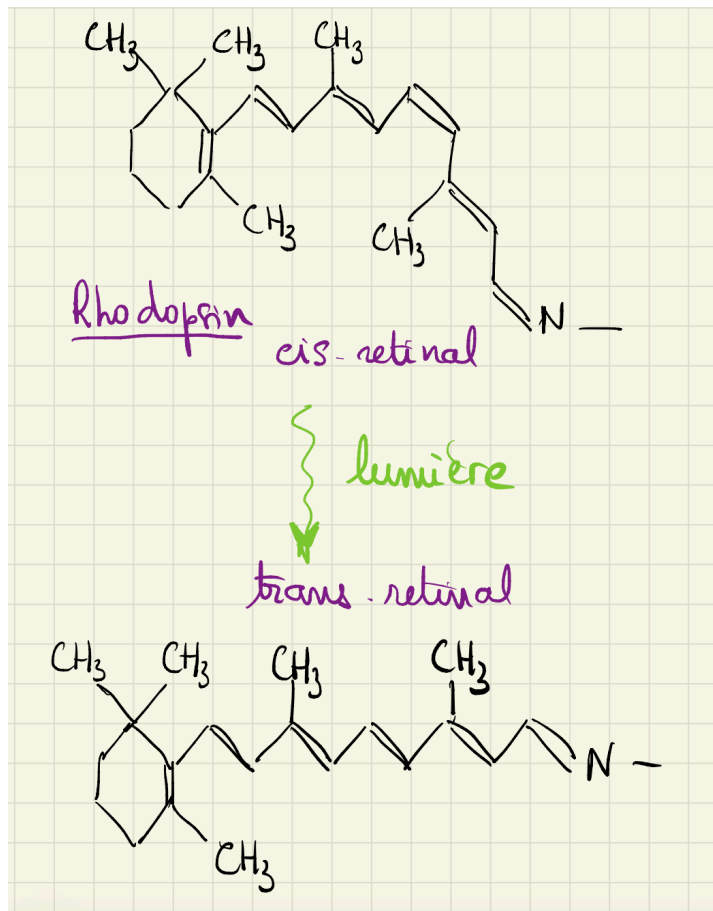 CH3 CH3 CH3
CH3
CH3
Rhodopsin
N —
cis-retinal
lumière
trans-retinal
CH3 CH3 CH3 CH3
N —
CH3